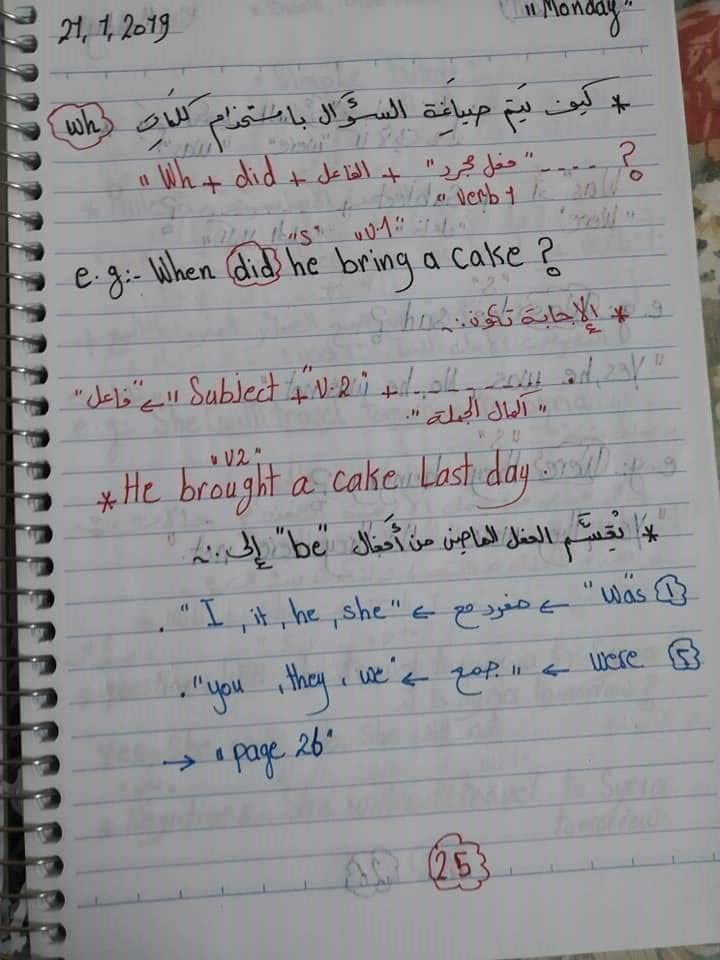 21, 1, 2019 "Monday"
* كيف يَتِم صياغَة السؤَال باستخدام كلمَات wh
"Wh + did + الفاعل + "فعل مجرد" ---- ?
"verb 1"
"s" "v.1"
e.g:- When did he bring a cake ?
* الإجابة تكون:
"فاعل" ← "Subject + "v.2" + ----.
"اكمال الجملة".
"v2"
* He brought a cake Last day.
* يُقسَّم الفعل الماضي من أَفعال "be" إلى:
1 "was" ← مفرد مع ← "I, it, he, she".
2 were ← "جمع ← "you, they, we".
→ "page 26"
25